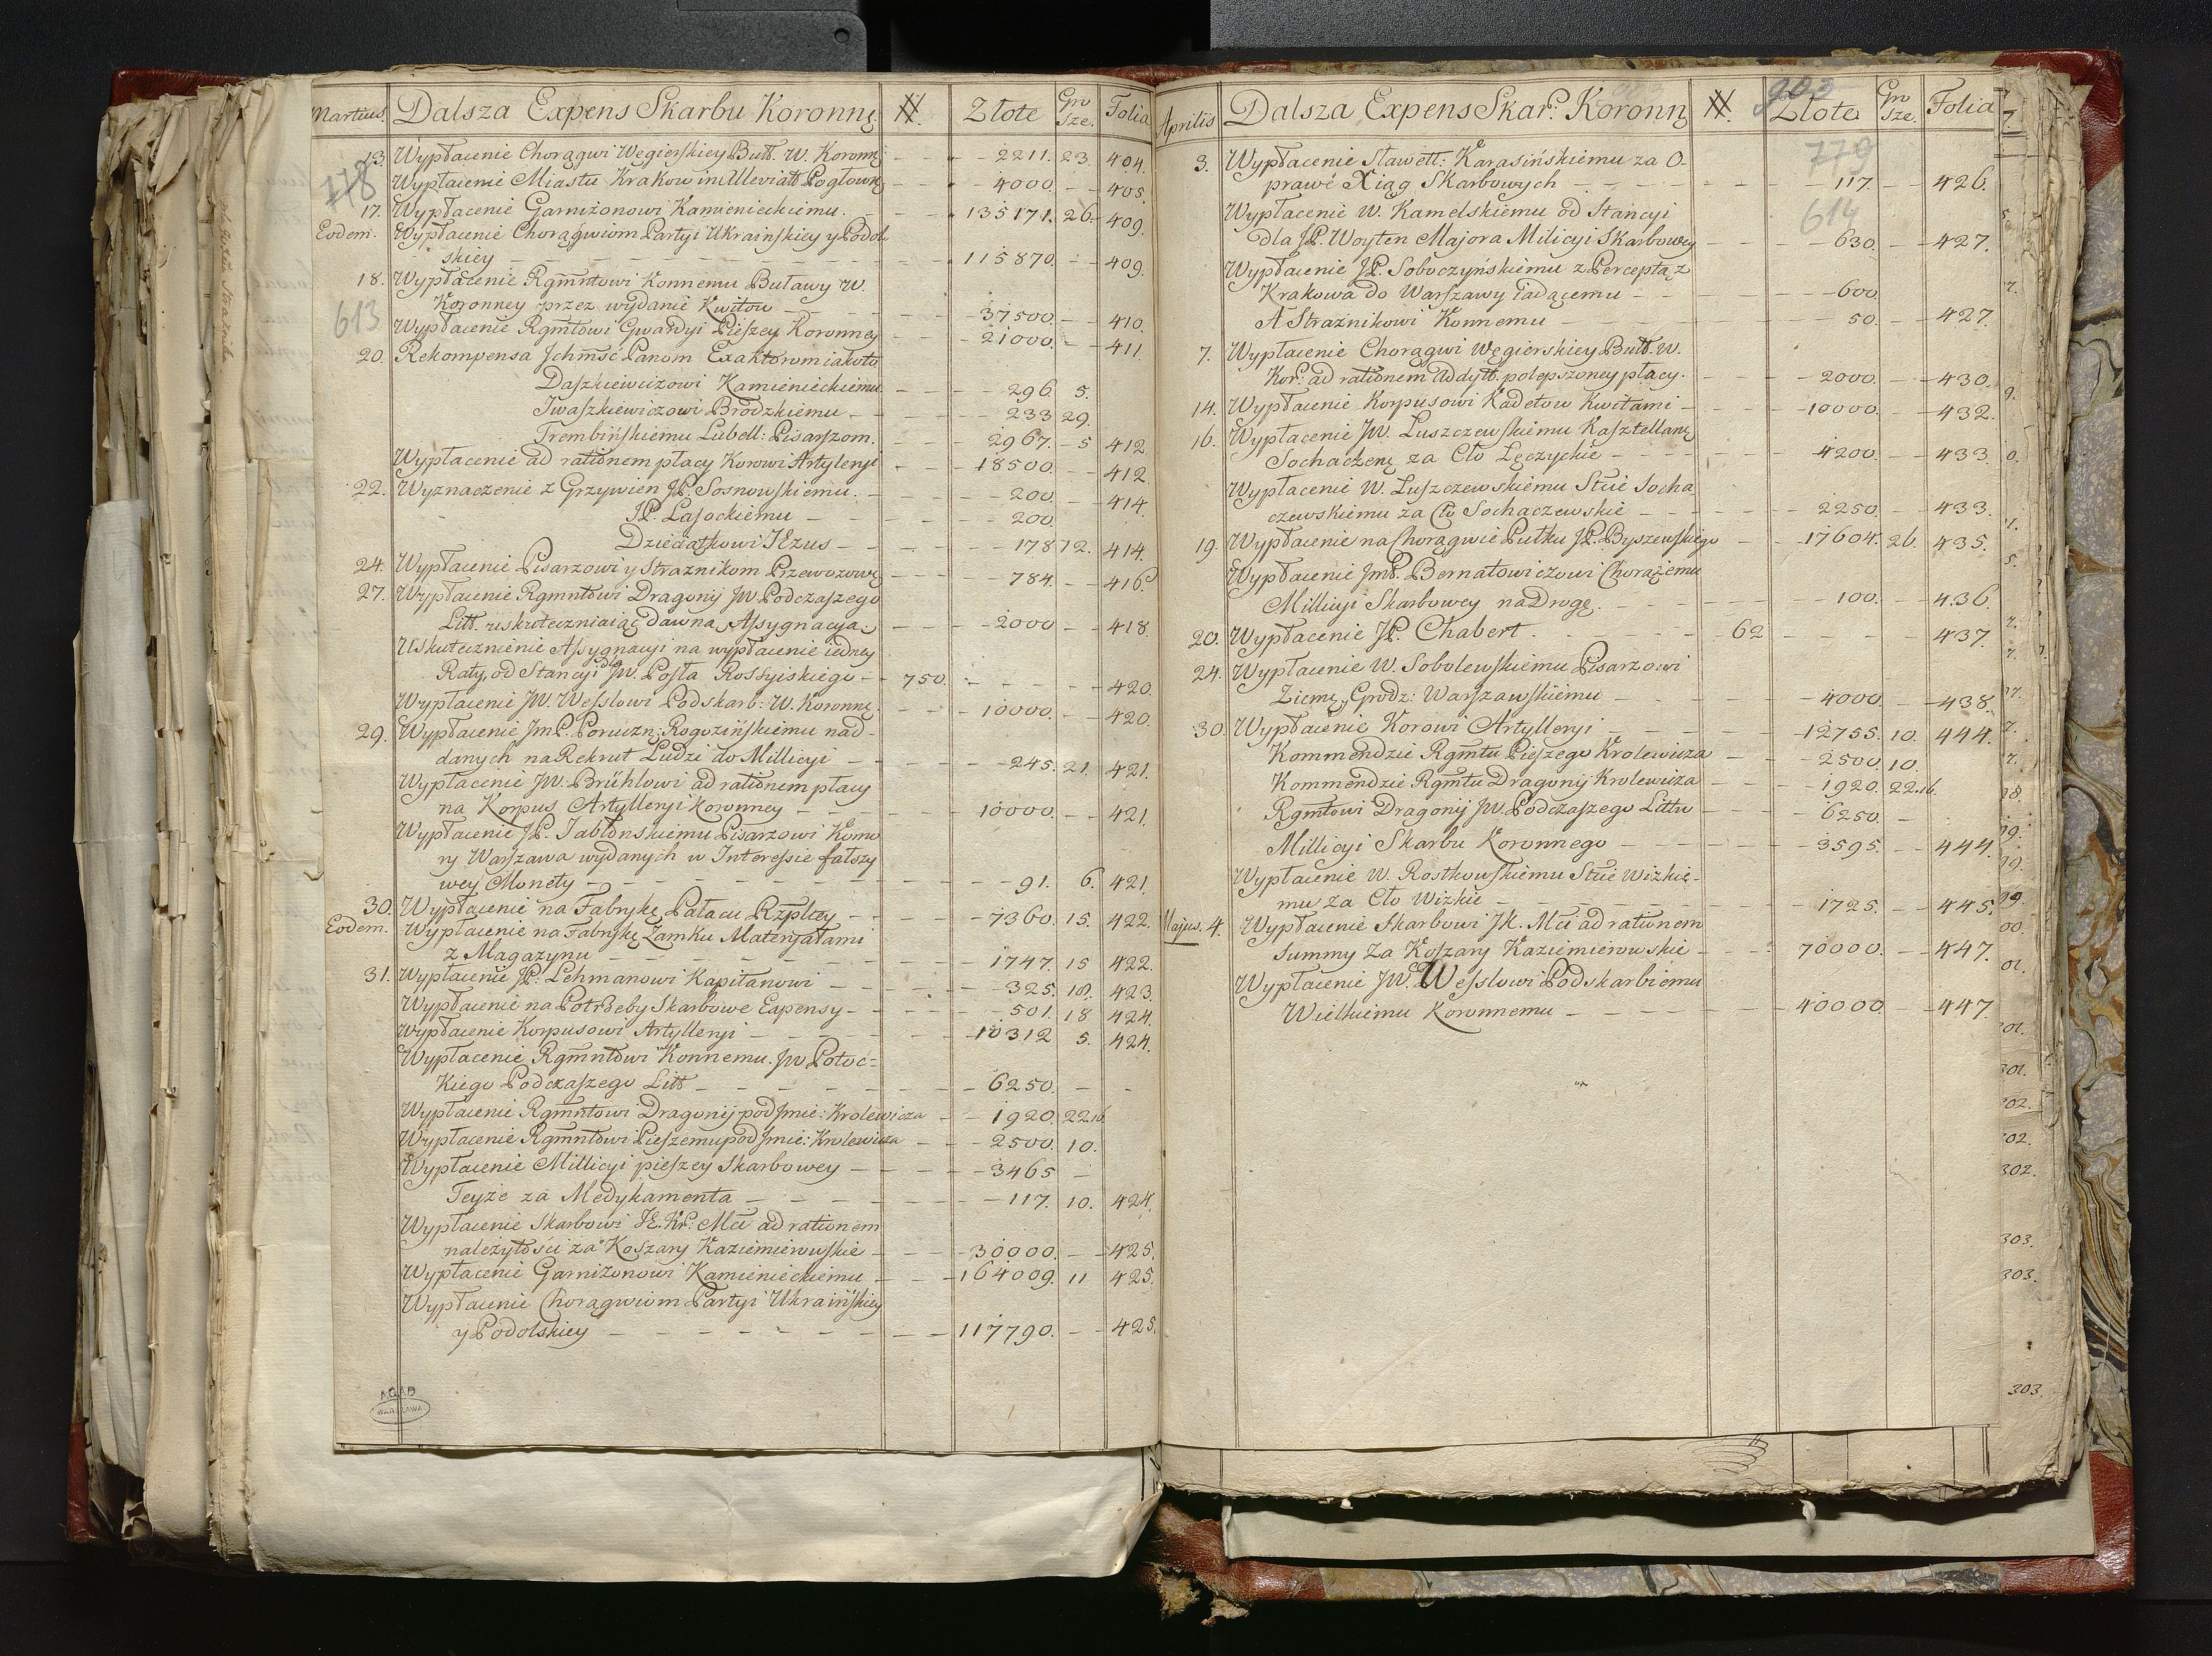 Martius. Dalsza Expens Skarbu Koronnę # Złote Gro sze. Folia
13 Wypłacenie Chorągwi Węgierskiey Bułł. W. Koronnę - - - 2211. 23. 404.
778
Wypłacenie Miastu Krakow in Pogłownę - - - 4000. - - 405.
17. Wypłacenie Garnizonowi Kamienieckiemu. - - 135171. 26. 409.
Eodem. Wypłacenie Chorągwiom Partyi Ukrainskiey y Podol
skiey - - - 115870. - - 409.
18. Wypłacenie Rgmntowi Konnemu Buławy W.
613 Koronney przez wydanie Kwitow - - 37500. - - 410.
Wypłacenie Rgmtowi Gwardyi Pieszey Koronney - - 21000. - - 411
20. Rekompensa Jchmść Panom Exaktorom iakoto
Daszkiewiczowi Kamienieckiemu. - - 296. 5.
Iwaszkiewiczowi Brodzkiemu - - 233 29.
Trembińskiemu Lubell: Pisarzom. - - 2967. - 5 412
Wypłacenie ad rationem płacy Korowi Artyleryi - - 18500. - - 412.
22. Wyznaczenie z Grzywien JP. Sosnowskiemu. - - 200. - 414
JP. Lasockiemu - - 200.
Dzieciątkowi JEzus - - 178 12. 414.
24. Wypłacenie Pisarzowi y Straznikom Przewozowę - - 784. - - 416
27. Wypłacenie Rgmntowi Dragonij JW. Podczaszego
Litt. uskuteczniaiąc dawną Assygnacyą - - 2000 - - 418.
Uskutecznienie Assygnacyi na wypłacenie iedney
Raty, od Stancyi dla JW. Posła Rossyiskiego - - 750. - - - 420.
Wypłacenie JW. Wesslowi Podskarb: W. Koronnę. - - 10000. - - 420.
29. Wypłacenie JmP. Poruczn: Rogozińskiemu nad-
danych na Rekrut Ludzi do Millicyi - - 245. 21. 421.
Wypłacenie JW. Brühlowi ad rationem płacy
na Korpus Artylleryi Koronney - - 10000. - - 421.
Wypłacenie JP. Jabłonskiemu Pisarzowi Komo
ry Warszawa wydanych w Interessie fałszy
wey Monety - - 91. 6. 421.
30. Wypłacenie na Fabrykę Pałacu Rzpltey - - 7360. 15. 422.
Eodem. Wypłacenie na Fabrykę Zamku Materyałami
z Magazynu - - 1747. 15 422.
31. Wypłacenie JP. Lehmanowi Kapitanowi - - 325. 18. 423.
Wypłacenie na Potrzeby Skarbowe Expensy - - 501. 18 424.
Wypłacenie Korpusowi Artylleryi - - 10312 5. 424.
Wypłacenie Rgmntowi Konnemu. JW Potoc-
kiego Podczaszego Litt - - 6250. - -
Wypłacenie Rgmntowi Dragonij pod Jmie: Krolewicza - - 1920. 22.16
Wypłacenie Rgmntowi Pieszemu pod Jmie: Krolewicza - - 2500. 10.
Wypłacenie Millicyi pieszey Skarbowey - - 3465 -
Teyże za Medykamenta - - 117. 10. 424.
Wypłacenie Skarbowi JE. Kr. Mci ad rationem
należytości za Koszary Kazimierowskie - - 30000. - - 425.
Wypłacenie Garnizonowi Kamienieckiemu - - 164009. 11 425.
Wypłacenie Chorągwiom Partyi Ukraińskiey
y Podolskiey - - 117790. - - 425.
AGAD
WARSZAWA
903
Aprilis Dalsza Expens Skar. Koronn # Złote Gro sze. Folia
779
3. Wypłacenie Sławett: Karasińskiemu za O-
prawę Xiąg Skarbowych - - 117. - - 426.
614
Wypłacenie W. Kamelskiemu od Stancyi
dla JP. Woyten Majora Milicyi Skarbowey - - 630. - - 427.
Wypłacenie JP. Soboczyńskiemu z Perceptą z
Krakowa do Warszawy iadącemu - - 600.
A Straźnikowi Konnemu - - 50. - - 427.
7. Wypłacenie Chorągwi Węgierskiey Bułł. W.
Kor: ad rationem Addytt. polepszoney płacy. - - 2000. - - 430.
14. Wypłacenie Korpusowi Kadetow Kwitami - - 10000. - - 432.
16. Wypłacenie JW. Luszczewskiemu Kasztellanę
Sochaczenę za Cło Lęczyckie - - 4200. - - 433.
Wypłacenie W. Luszczewskiemu Stuie Socha
czewskiemu za Cło Sochaczewskie - - 2250. - - 433.
19. Wypłacenie na Chorągwie Pułku JP. Byszewskiego - - 17604. 26. 435.
Wypłacenie JmP. Bernatowiczowi Chorążemu
Millicyi Skarbowey na Drogę. - - 100. - - 436.
20. Wypłacenie JP. Chabert. - - 62 - - 437.
24. Wypłacenie W. Sobolewskiemu Pisarzowi
Ziemę y Grodz: Warszawskiemu - - 4000. - - 438.
30. Wypłacenie Korowi Artylleryi - - 12755. 10. 444.
Kommendzie Rgmtu Pieszego Krolewicza - - 2500. 10.
Kommendzie Rgmtu Dragonij Krolewicza - - 1920. 22.16.
Rgmtowi Dragonij JW. Podczaszego Littw - - 6250. -
Millicyi Skarbu Koronnego - - 3595. - - 444.
Wypłacenie W. Rostkowskiemu Stuie Wizkie-
mu za Cło Wizkie - - 1725. - - 445.
Majus. 4. Wypłacenie Skarbowi JK. Mci ad rationem
Summy za Koszary Kazimierowskie - - 70000. - - 447.
Wypłacenie JW. Wesslowi Podskarbiemu
Wielkiemu Koronnemu - - 40000. - - 447.
301.
302.
302.
302.
303.
303.
303.